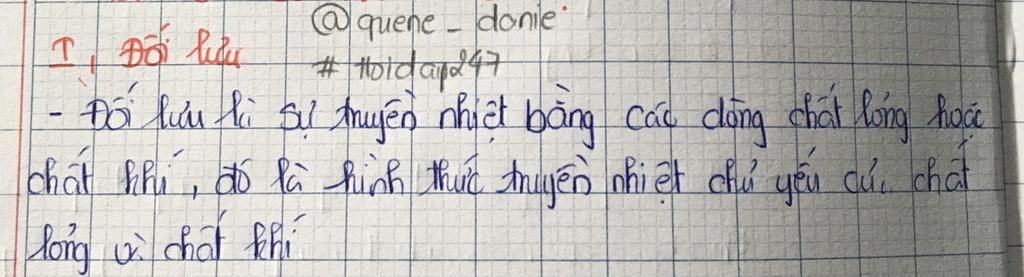 @quene_donie
I, Đối lưu
# Hoidap247
- Đối lưu là sự truyền nhiệt bằng các dòng chất lỏng hoặc
chất khí, đó là hình thức truyền nhiệt chủ yếu của chất
lỏng và chất khí